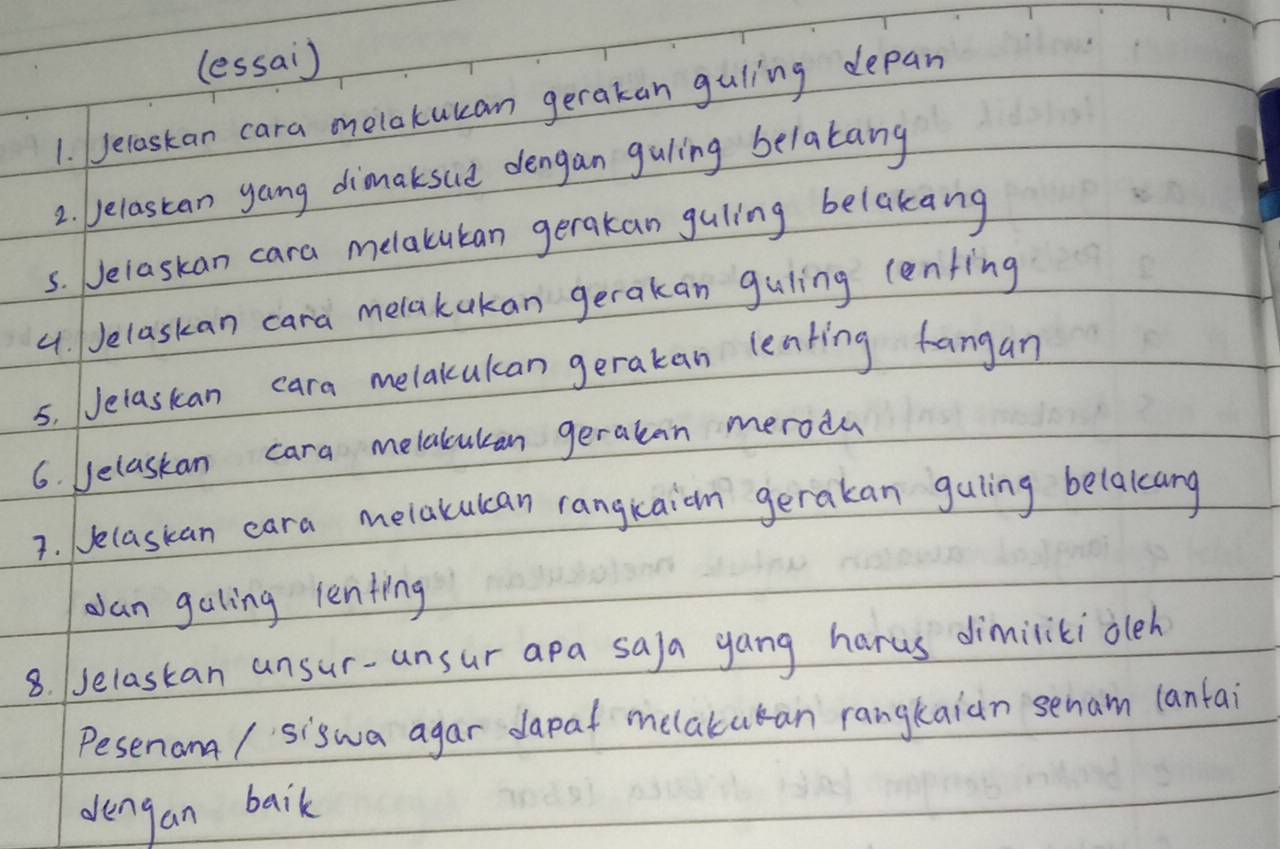 (essai)
1. Jelaskan cara melakukan gerakan guling depan
2. Jelaskan yang dimaksud dengan guling belakang
3. Jelaskan cara melakukan gerakan guling belakang
4. Jelaskan cara melakukan gerakan guling lenting
5. Jelaskan cara melakukan gerakan lenting tangan
6. Jelaskan cara melakukan gerakan meroda
7. Jelaskan cara melakukan rangkaian gerakan guling belakang
dan guling lenting
8. Jelaskan unsur-unsur apa saja yang harus dimiliki oleh
Pesenam / siswa agar dapat melakukan rangkaian senam lantai
dengan baik